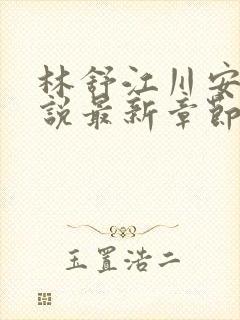 林舒江川安
説最新章節
玉置浩二